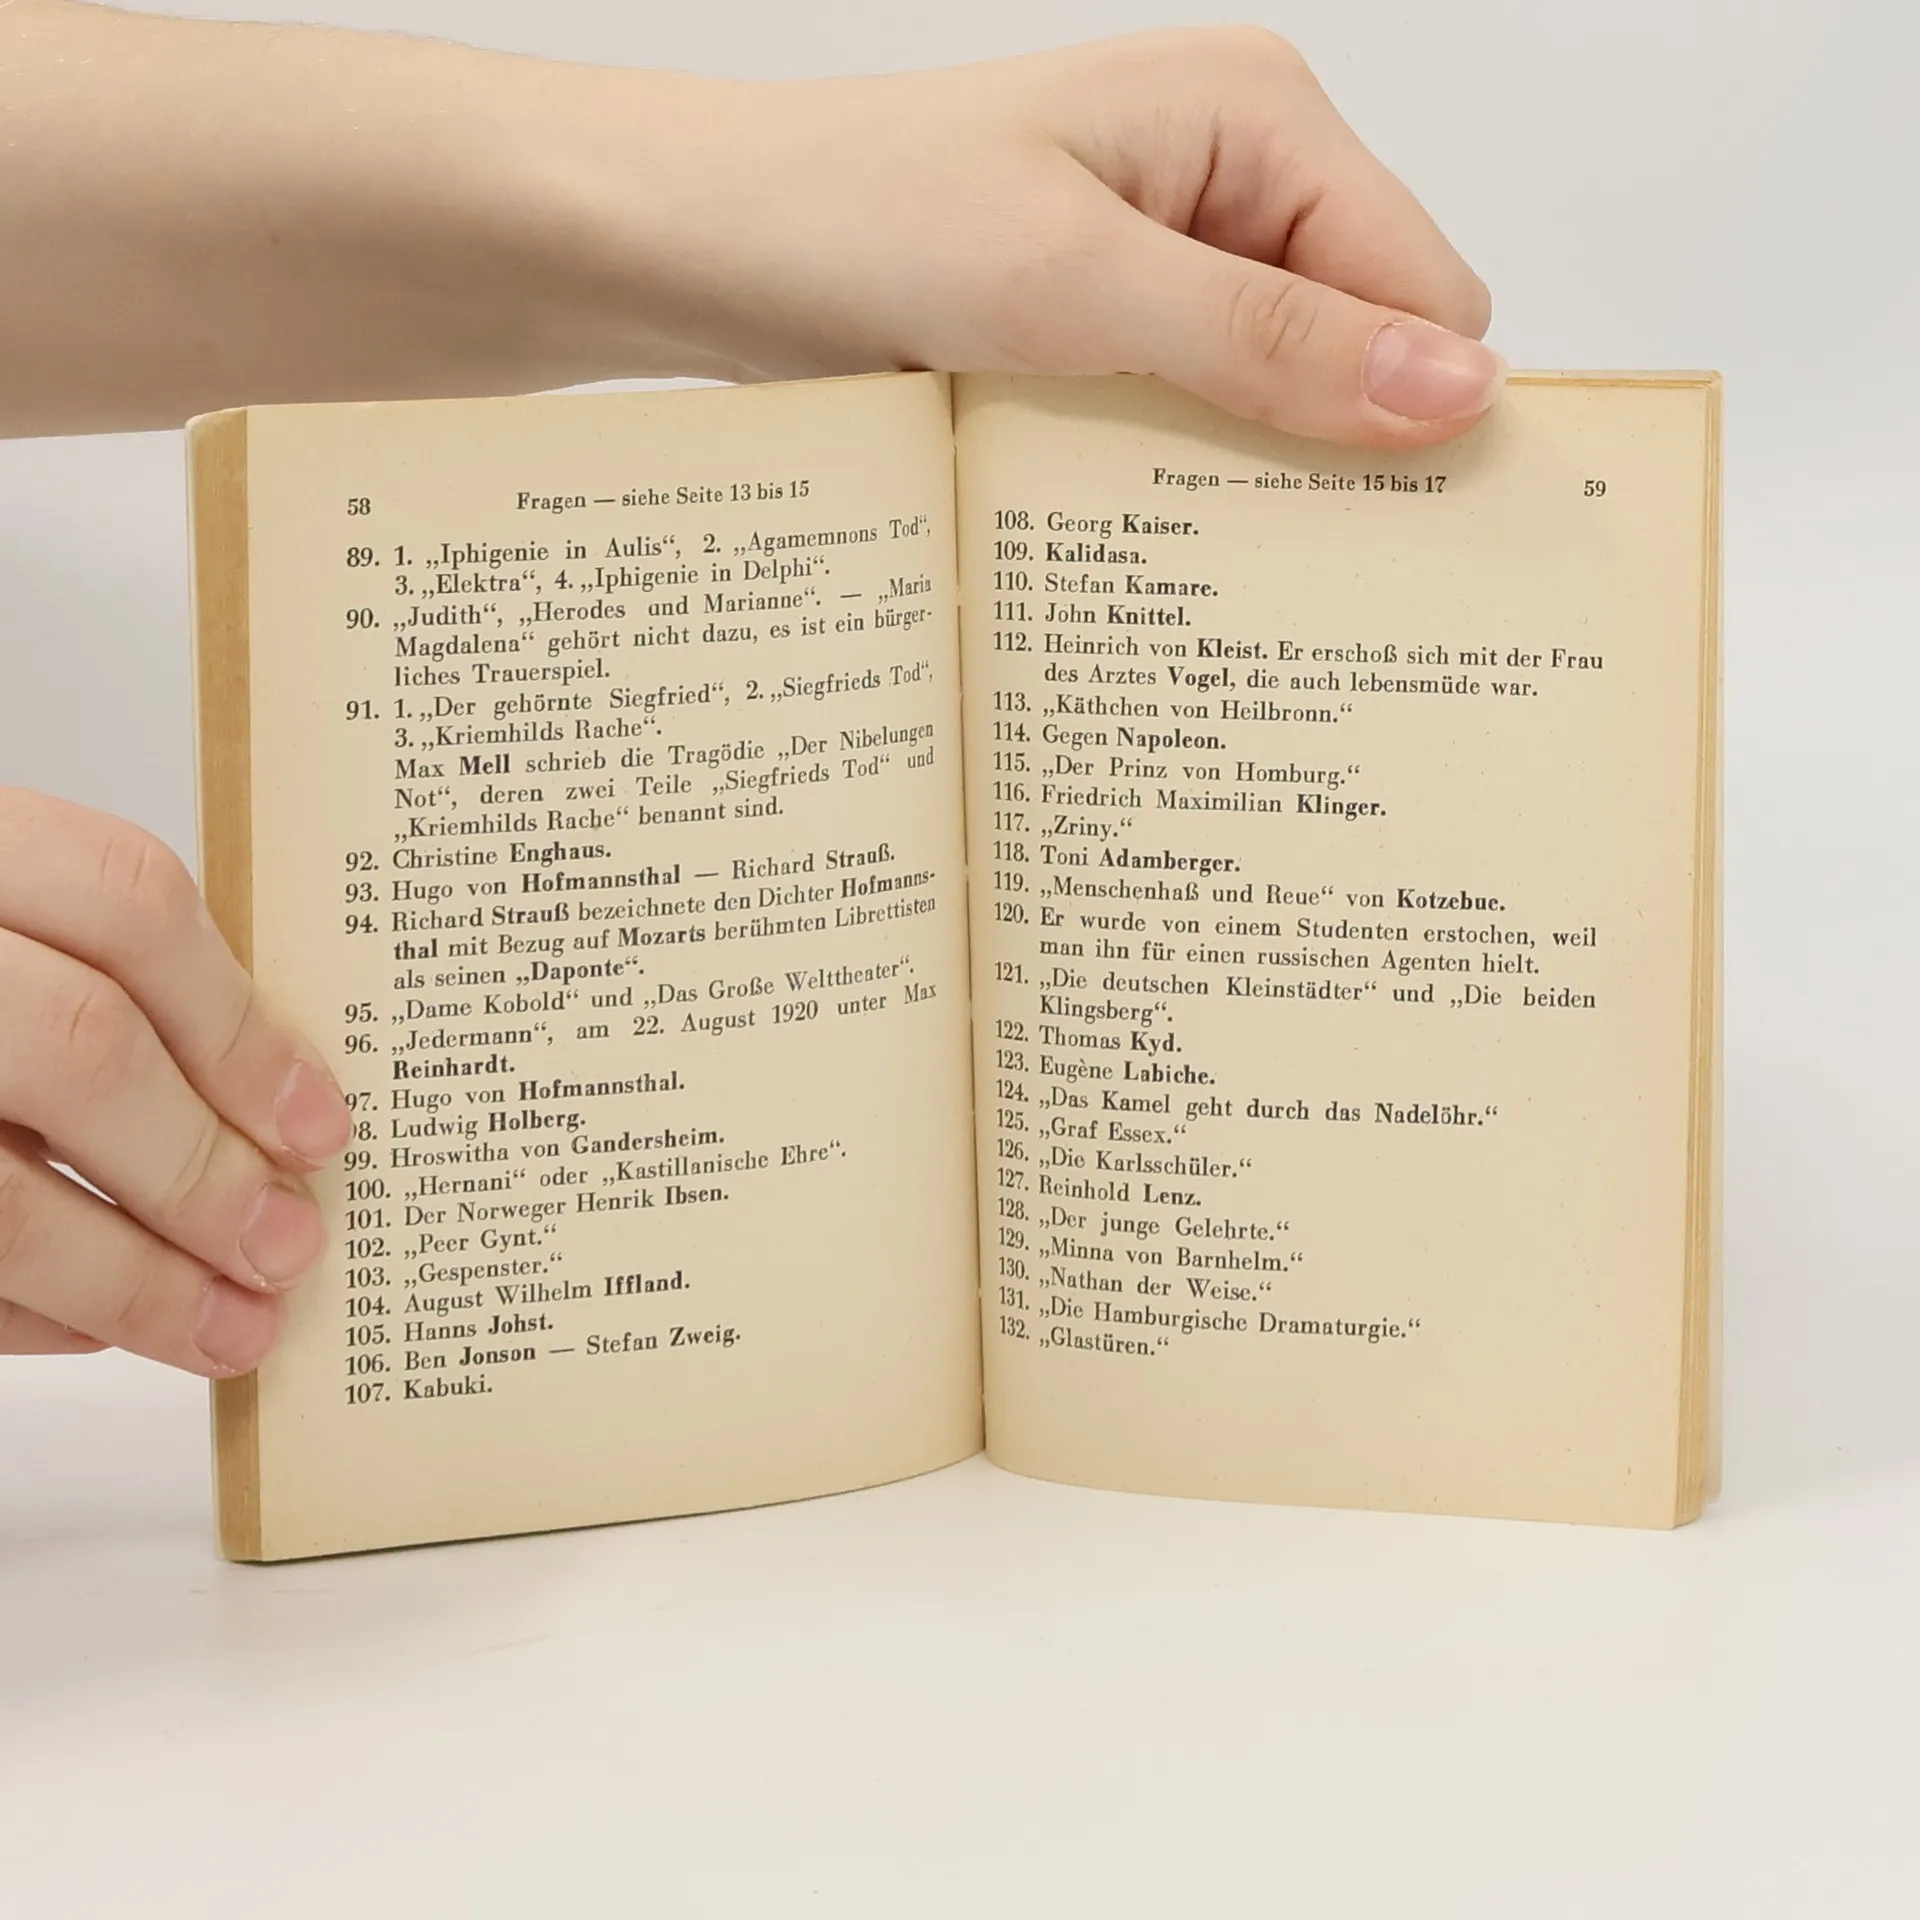 58
Fragen — siehe Seite 13 bis 15
89. 1. „Iphigenie in Aulis“, 2. „Agamemnons Tod“,
3. „Elektra“, 4. „Iphigenie in Delphi“.
90. „Judith“, „Herodes und Marianne“. — „Maria
Magdalena“ gehört nicht dazu, es ist ein bürger-
liches Trauerspiel.
91. 1. „Der gehörnte Siegfried“, 2. „Siegfrieds Tod“,
3. „Kriemhilds Rache“.
Max Mell schrieb die Tragödie „Der Nibelungen
Not“, deren zwei Teile „Siegfrieds Tod“ und
„Kriemhilds Rache“ benannt sind.
92. Christine Enghaus.
93. Hugo von Hofmannsthal — Richard Strauß.
94. Richard Strauß bezeichnete den Dichter Hofmanns-
thal mit Bezug auf Mozarts berühmten Librettisten
als seinen „Daponte“.
95. „Dame Kobold“ und „Das Große Welttheater“.
96. „Jedermann“, am 22. August 1920 unter Max
Reinhardt.
97. Hugo von Hofmannsthal.
8. Ludwig Holberg.
99. Hroswitha von Gandersheim.
100. „Hernani“ oder „Kastillanische Ehre“.
101. Der Norweger Henrik Ibsen.
102. „Peer Gynt.“
103. „Gespenster.“
104. August Wilhelm Iffland.
105. Hanns Johst.
106. Ben Jonson — Stefan Zweig.
107. Kabuki.
Fragen — siehe Seite 15 bis 17
59
108. Georg Kaiser.
109. Kalidasa.
110. Stefan Kamare.
111. John Knittel.
112. Heinrich von Kleist. Er erschoß sich mit der Frau
des Arztes Vogel, die auch lebensmüde war.
113. „Käthchen von Heilbronn.“
114. Gegen Napoleon.
115. „Der Prinz von Homburg.“
116. Friedrich Maximilian Klinger.
117. „Zriny.“
118. Toni Adamberger.
119. „Menschenhaß und Reue“ von Kotzebue.
120. Er wurde von einem Studenten erstochen, weil
man ihn für einen russischen Agenten hielt.
121. „Die deutschen Kleinstädter“ und „Die beiden
Klingsberg“.
122. Thomas Kyd.
123. Eugène Labiche.
124. „Das Kamel geht durch das Nadelöhr.“
125. „Graf Essex.“
126. „Die Karlsschüler.“
127. Reinhold Lenz.
128. „Der junge Gelehrte.“
129. „Minna von Barnhelm.“
130. „Nathan der Weise.“
131. „Die Hamburgische Dramaturgie.“
132. „Glastüren.“